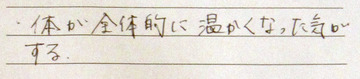 ・体が全体的に温かくなった気が
する.